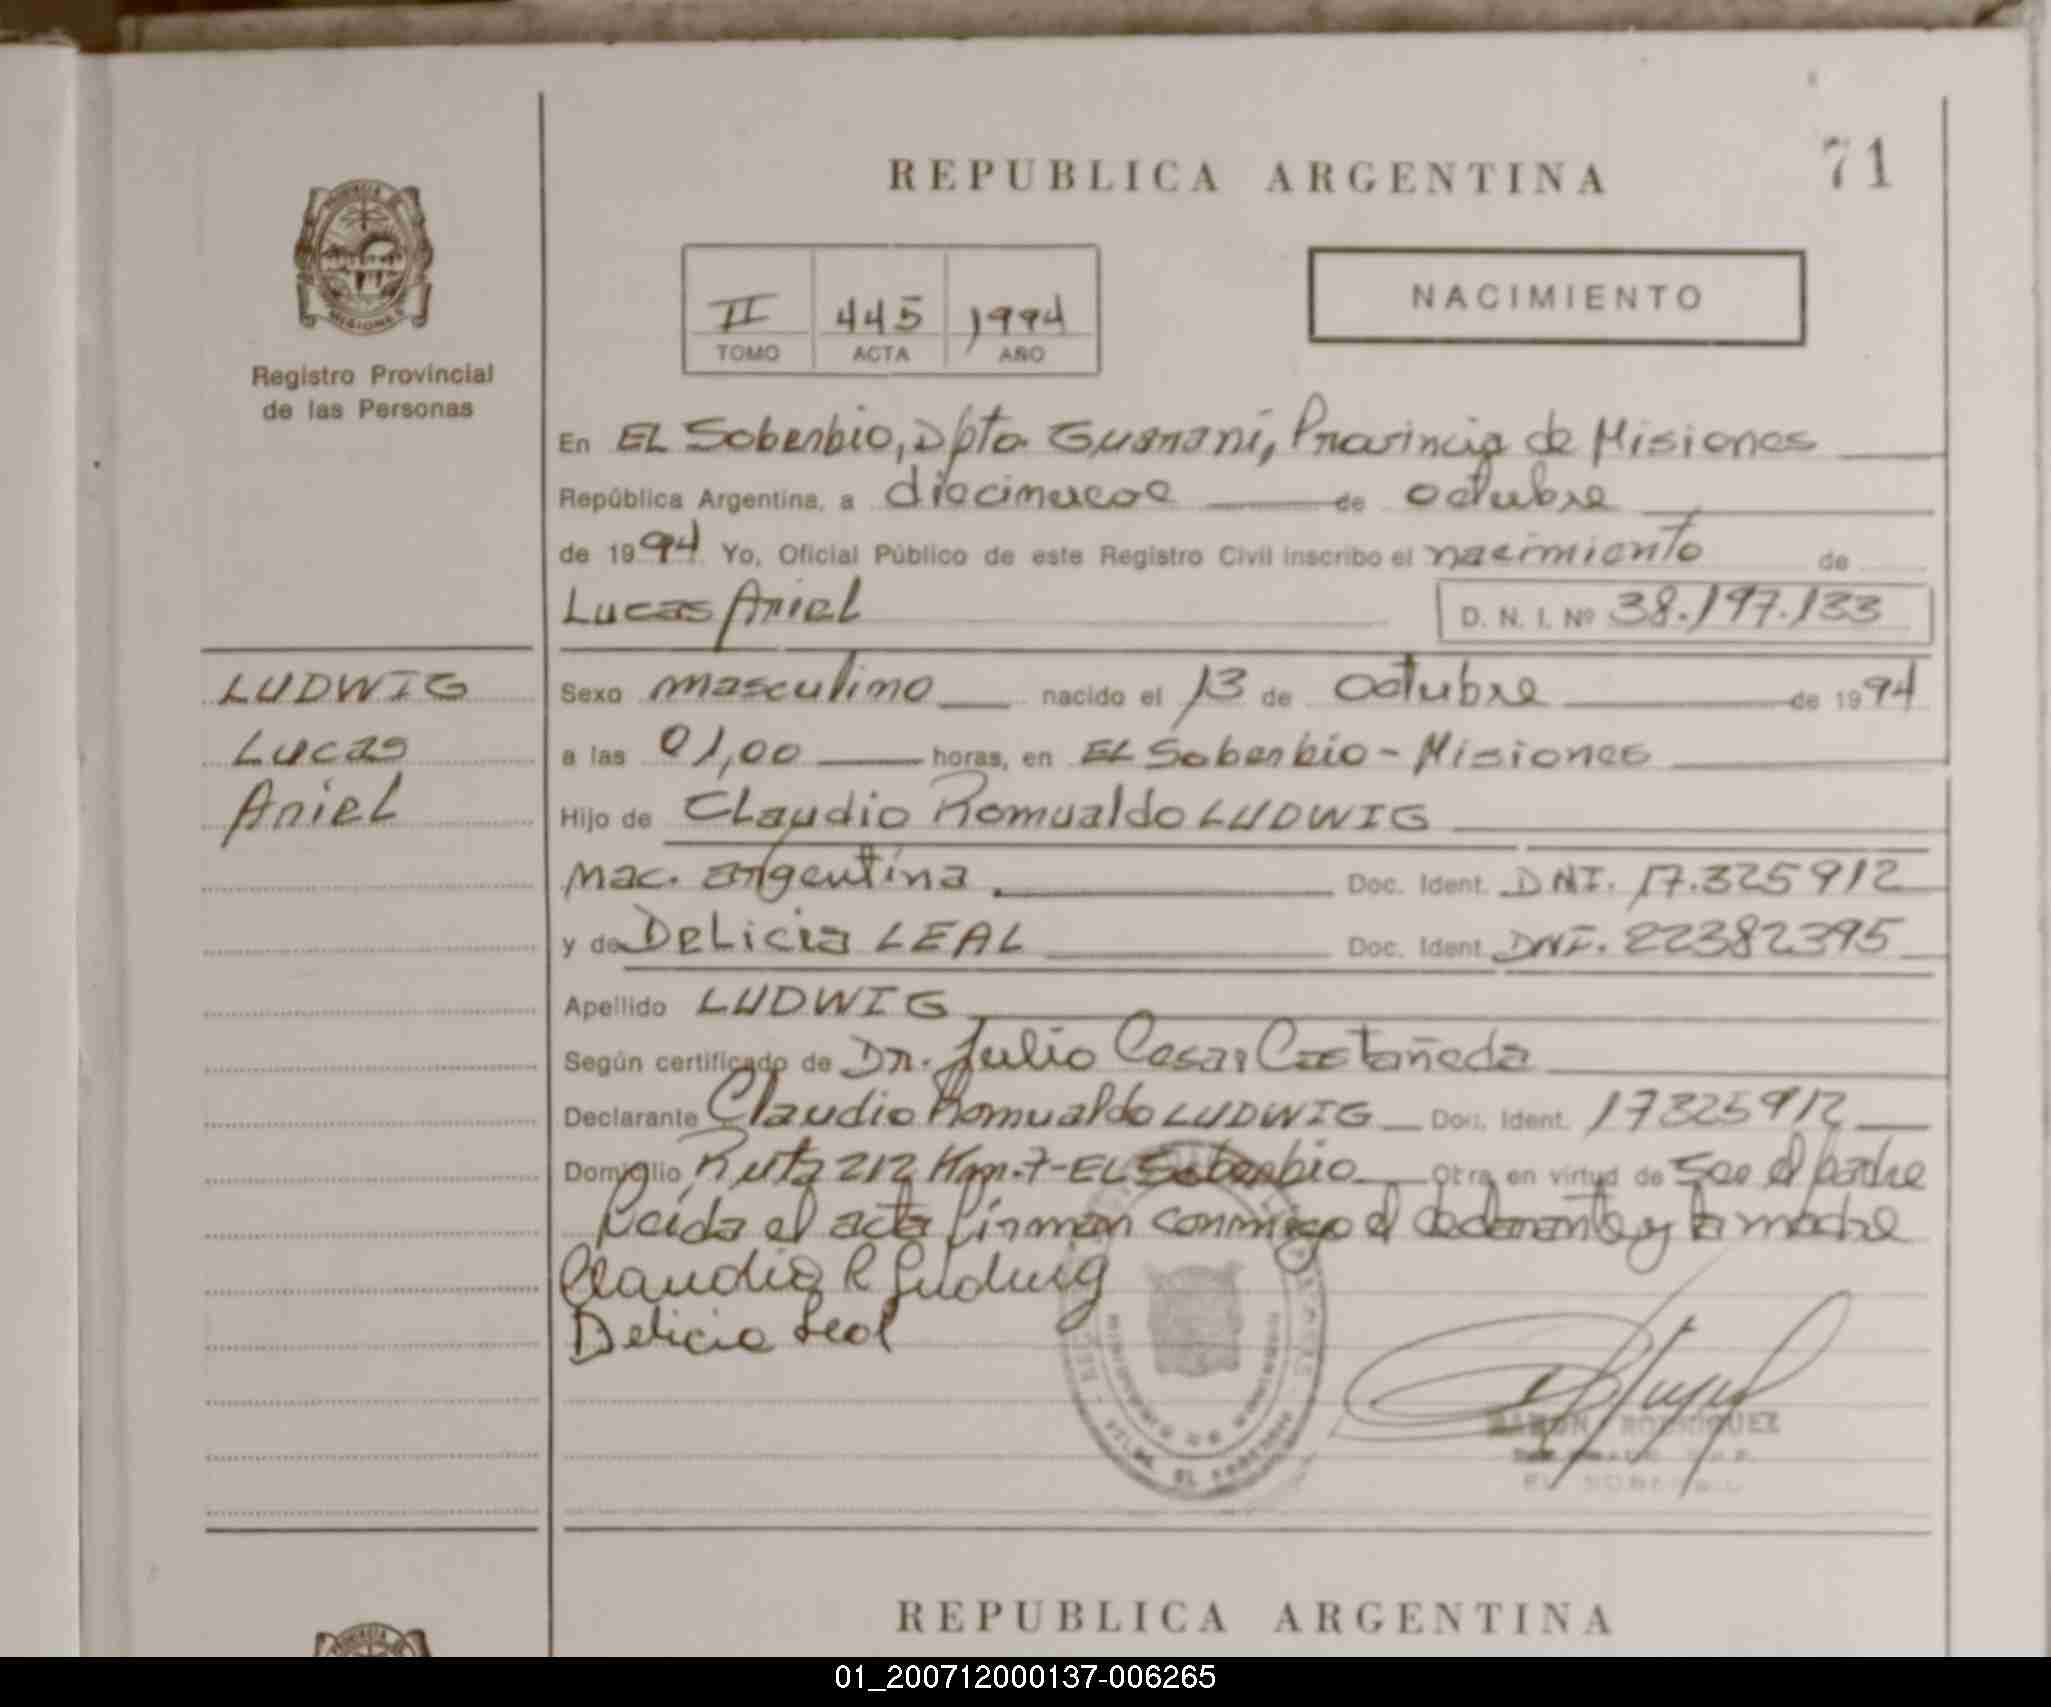 REPUBLICA ARGENTINA
71
PROVINCIA DE
MISIONES
Registro Provincial
de las Personas
II 445 1994
TOMO ACTA AÑO
NACIMIENTO
En EL Soberbio, Dpto Guaraní, Provincia de Misiones
República Argentina, a diecinueve de octubre
de 1994 Yo, Oficial Público de este Registro Civil inscribo el nacimiento de
Lucas Ariel
D. N. I. Nº 38.197.133
LUDWIG
Lucas
Ariel
Sexo masculino nacido el 13 de octubre de 1994
a las 01,00 horas, en EL Soberbio - Misiones
Hijo de Claudio Romualdo LUDWIG
nac. argentina Doc. Ident. DNI. 17.325912
y de Delicia LEAL Doc. Ident. DNI. 22382395
Apellido LUDWIG
Según certificado de Dr. Julio Cesar Castañeda
Declarante Claudio Romualdo LUDWIG Doc. Ident. 17325912
Domicilio Ruta 212 Km.7-EL Soberbio Obra en virtud de ser el padre
Leída el acta firman conmigo el declarante y la madre
Claudio R Ludwig
Delicia Leal
RAMON RODRIGUEZ
EL SOBERBIO
REPUBLICA ARGENTINA
01_200712000137-006265